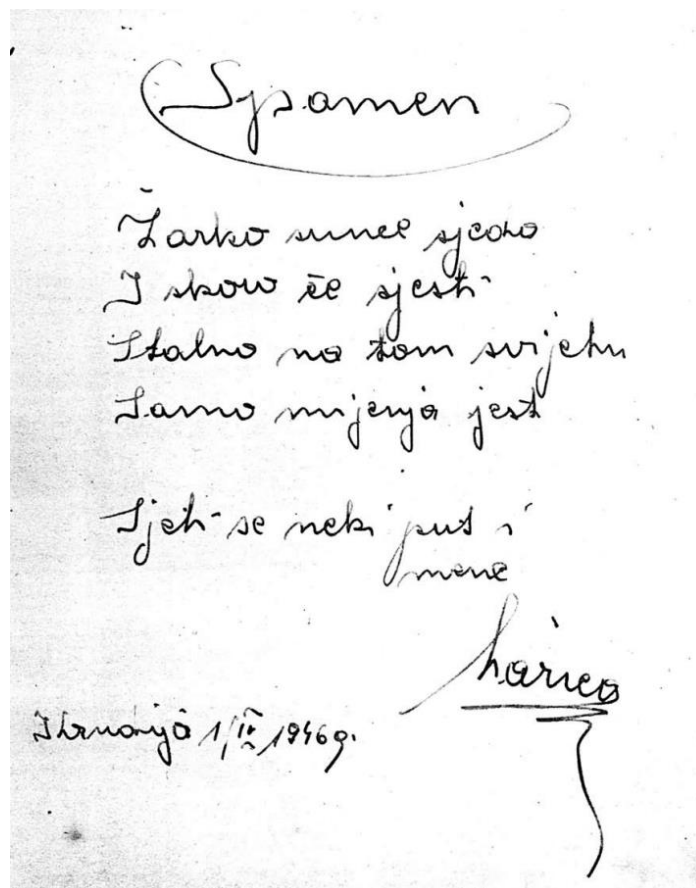 Spomen
Žarko sunce sjeda
I skoro će sjesti
Stalno na tom svijetu
Samo mijenja jest
Sjeti se neki put i
mene
Marica
1/IV 1946 g.